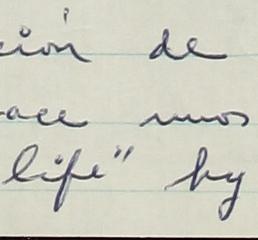 ción de
ace unos
life" by